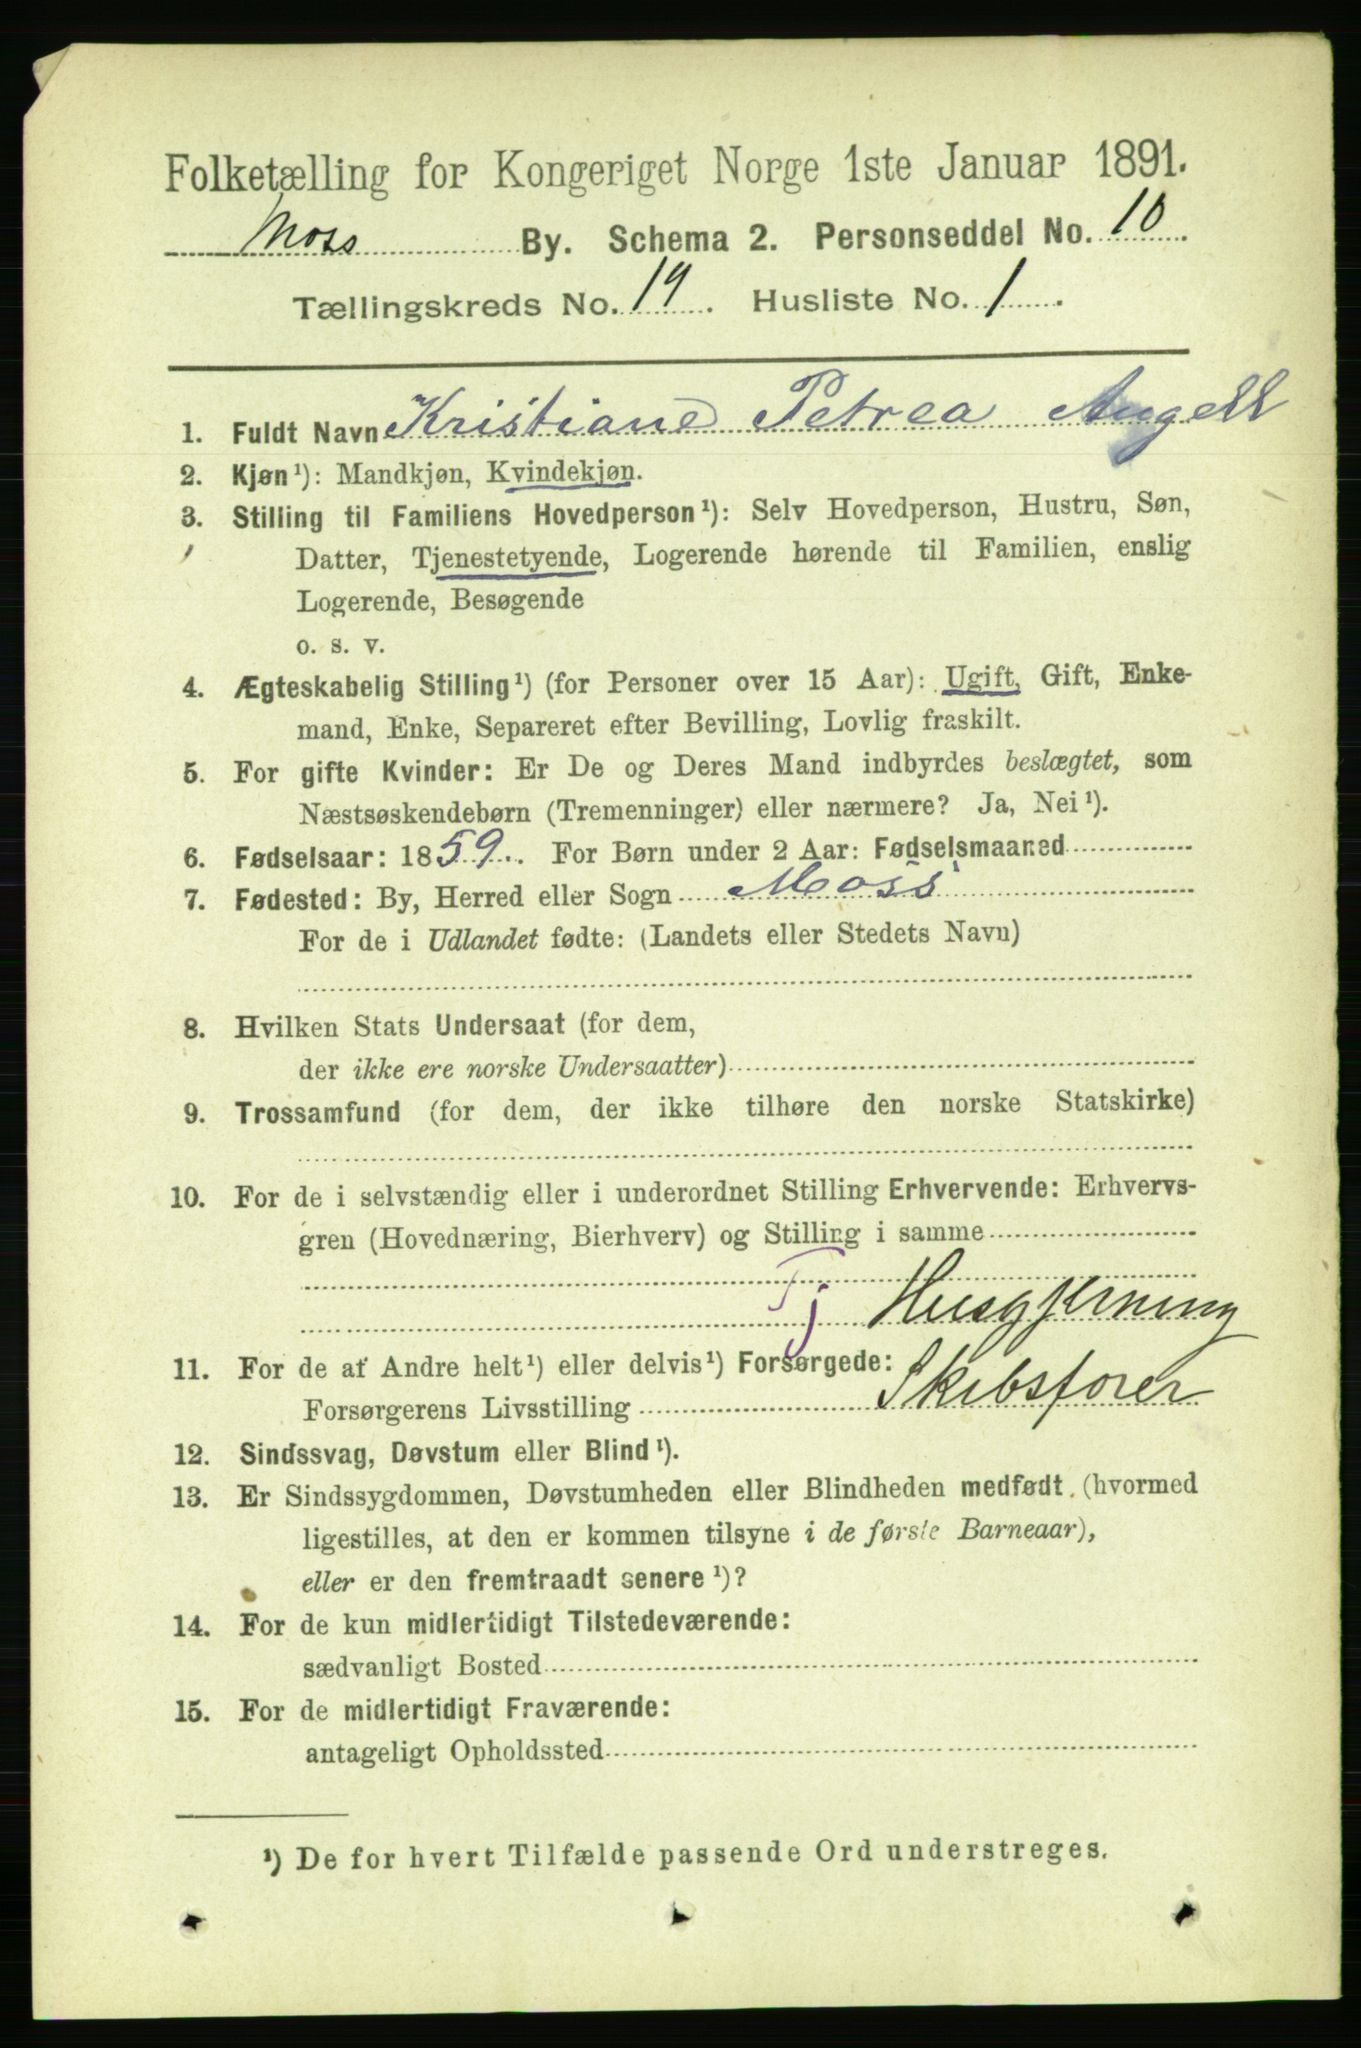 Folketælling for Kongeriget Norge 1ste Januar 1891.
Moss By. Schema 2. Personseddel No. 10.
Tællingskreds No. 19. Husliste No. 1.
1. Fuldt Navn Kristiane Petrea Angell
2. Kjøn¹): Mandkjøn, Kvindekjøn.
3. Stilling til Familiens Hovedperson¹): Selv Hovedperson, Hustru, Søn,
Datter, Tjenestetyende, Logerende hørende til Familien, enslig
Logerende, Besøgende
o. s. v.
4. Ægteskabelig Stilling¹) (for Personer over 15 Aar): Ugift, Gift, Enke-
mand, Enke, Separeret efter Bevilling, Lovlig fraskilt.
5. For gifte Kvinder: Er De og Deres Mand indbyrdes beslægtet, som
Næstsøskendebørn (Tremenninger) eller nærmere? Ja, Nei¹).
6. Fødselsaar: 1859. For Børn under 2 Aar: Fødselsmaaned
7. Fødested: By, Herred eller Sogn Moss
For de i Udlandet fødte: (Landets eller Stedets Navn)
8. Hvilken Stats Undersaat (for dem,
der ikke ere norske Undersaatter)
9. Trossamfund (for dem, der ikke tilhøre den norske Statskirke)
10. For de i selvstændig eller i underordnet Stilling Erhvervende: Erhvervs-
gren (Hovednæring, Bierhverv) og Stilling i samme
Tj Husgjerning
11. For de af Andre helt¹) eller delvis¹) Forsørgede:
Forsørgerens Livsstilling Skibsfører
12. Sindssvag, Døvstum eller Blind¹).
13. Er Sindssygdommen, Døvstumheden eller Blindheden medfødt (hvormed
ligestilles, at den er kommen tilsyne i de første Barneaar),
eller er den fremtraadt senere¹)?
14. For de kun midlertidigt Tilstedeværende:
sædvanligt Bosted
15. For de midlertidigt Fraværende:
antageligt Opholdssted
¹) De for hvert Tilfælde passende Ord understreges.